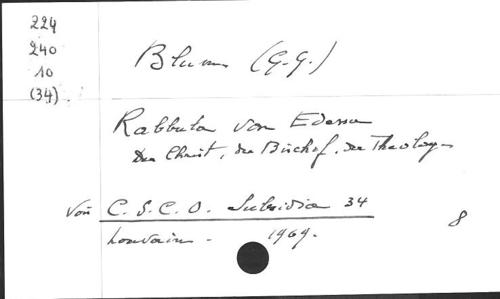 224
240
10
(34)
Blum (G.G.)
Rabbula von Edessa
Der Christ, der Bischof, der Theologe
Voir C.S.C.O. Subsidia 34
Louvain - 1969.
8